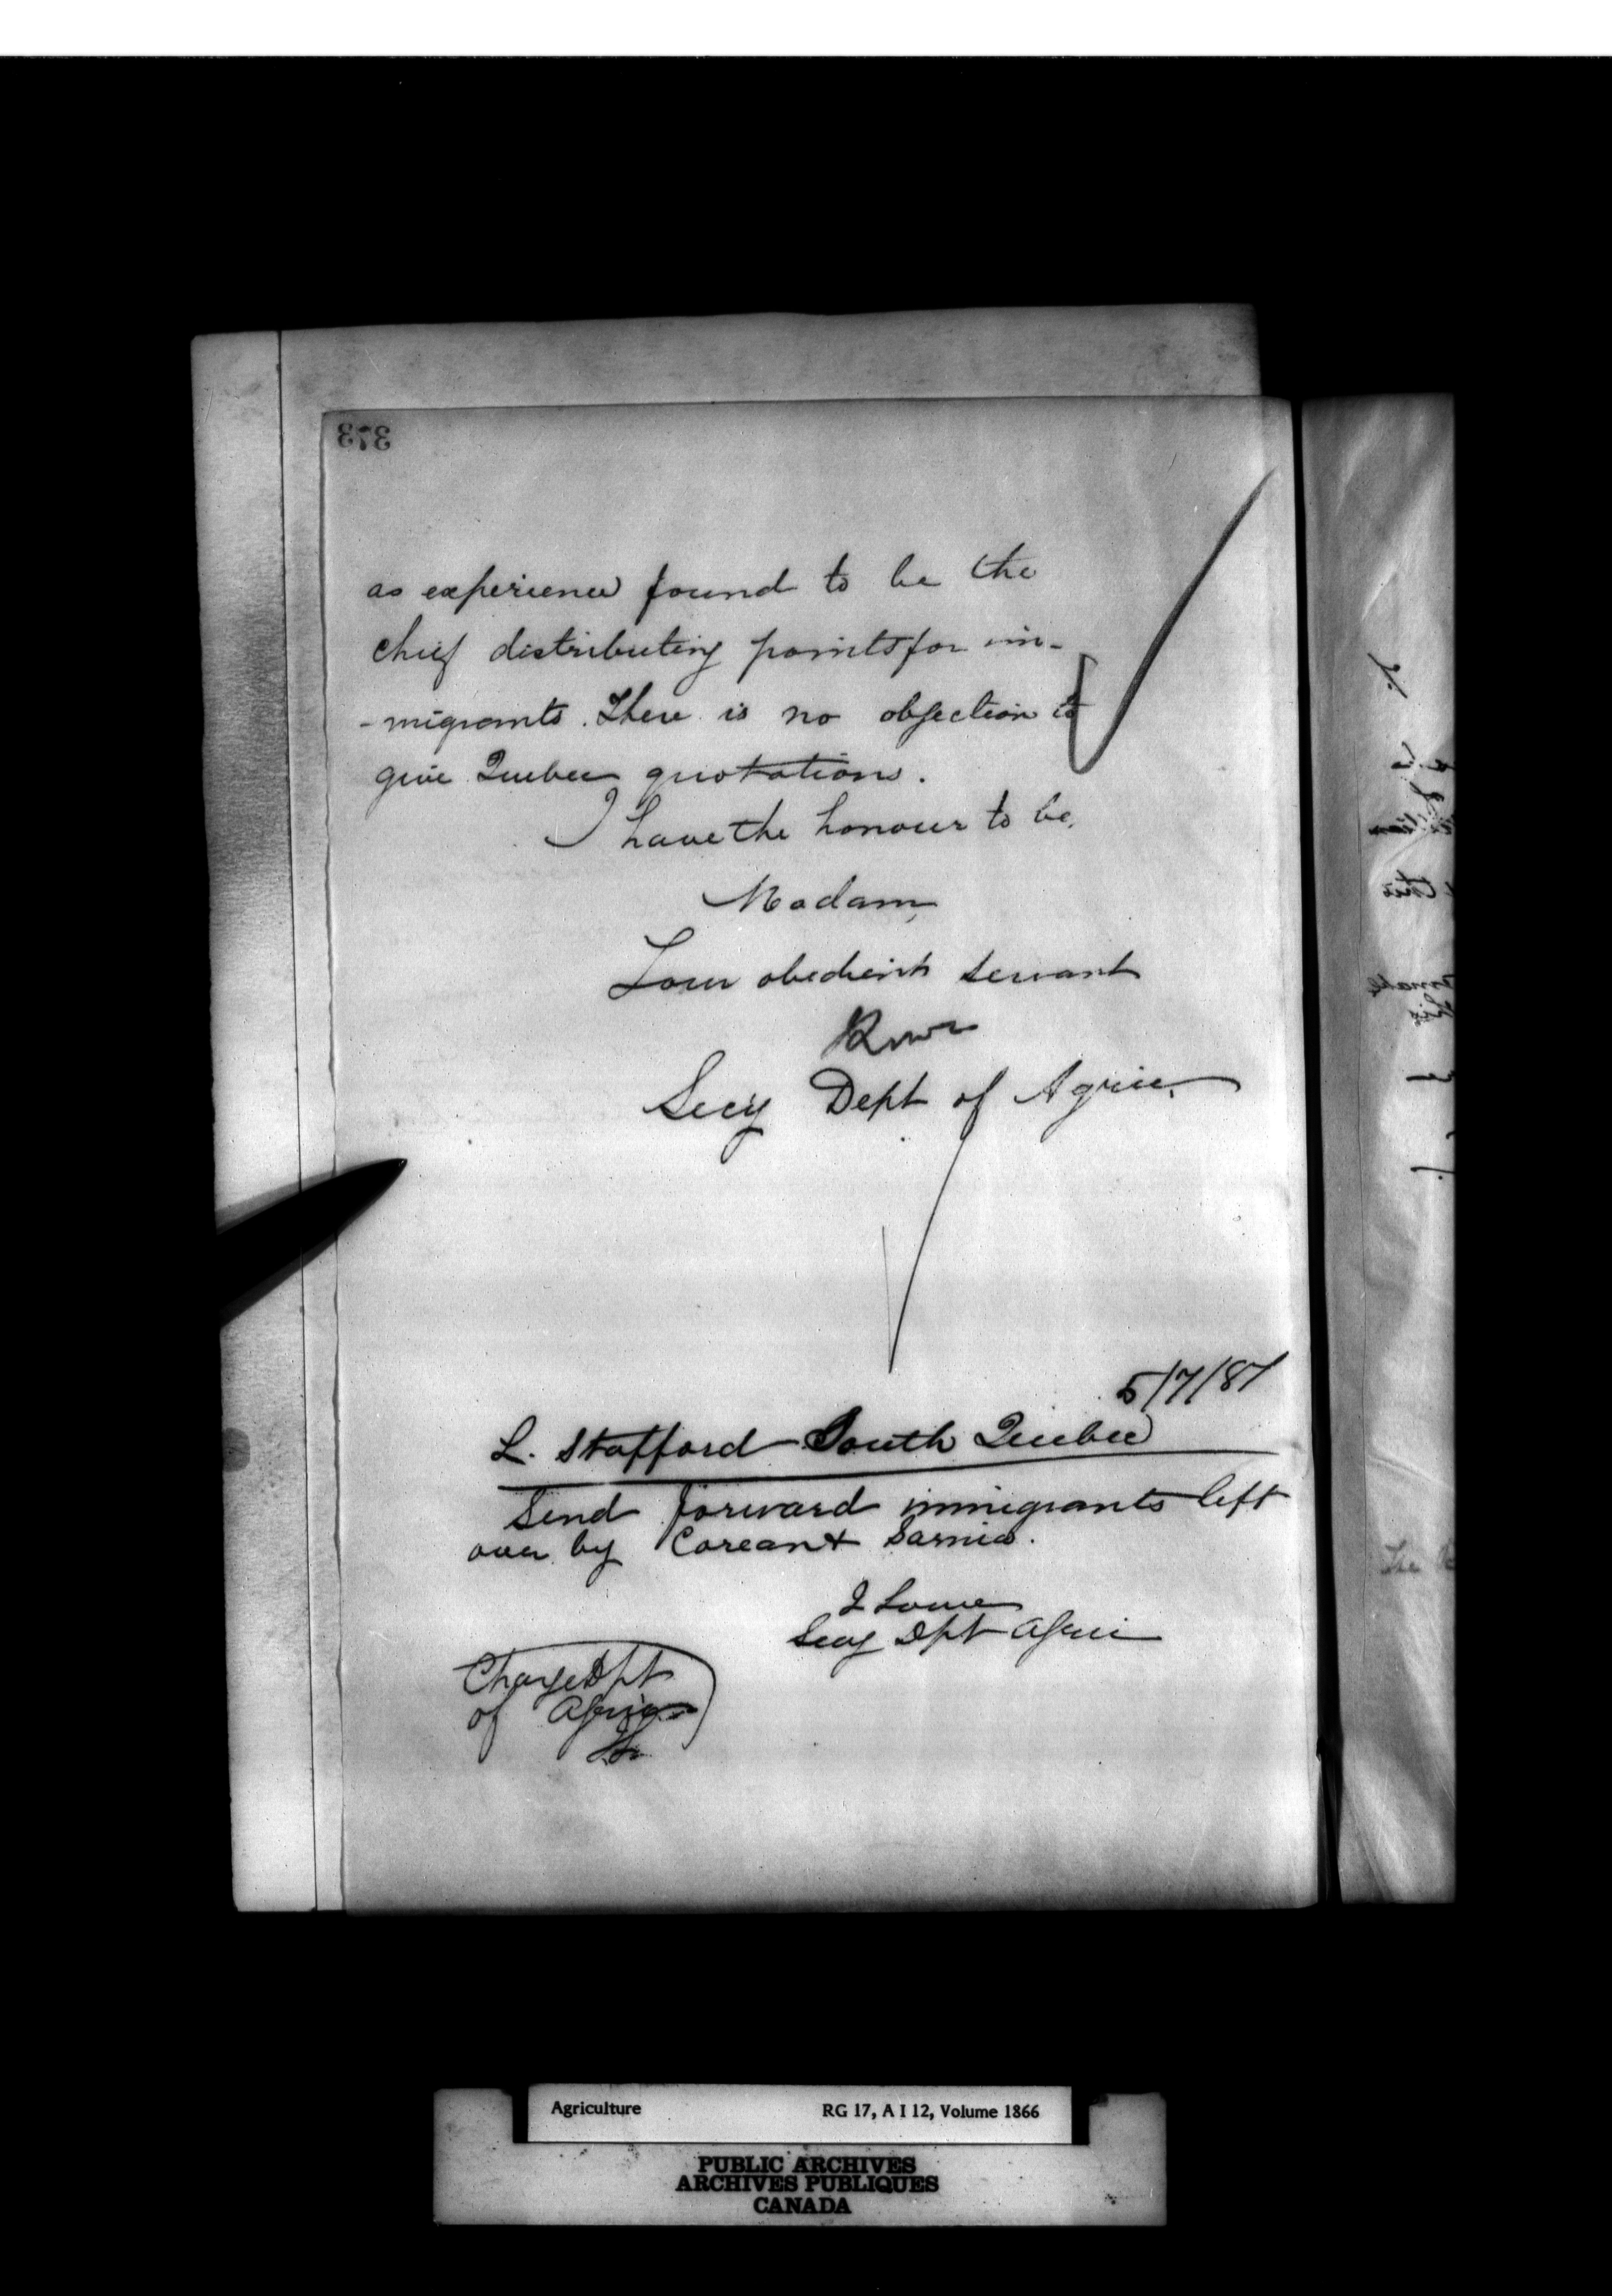 373
as experience found to be the
chief distributing points for im-
-migrants. There is no objection to
give Quebec quotations.
I have the honour to be,
Madam,
Your obedient servant
Secy Dept of Agric.
5/7/87
L. Stafford South Quebec
Send forward immigrants left
over by Corean & Sarnia.
J Lowe
Secy Dpt Agric
Charge Dpt
of Agric
Agriculture RG 17, A I 12, Volume 1866
PUBLIC ARCHIVES
ARCHIVES PUBLIQUES
CANADA